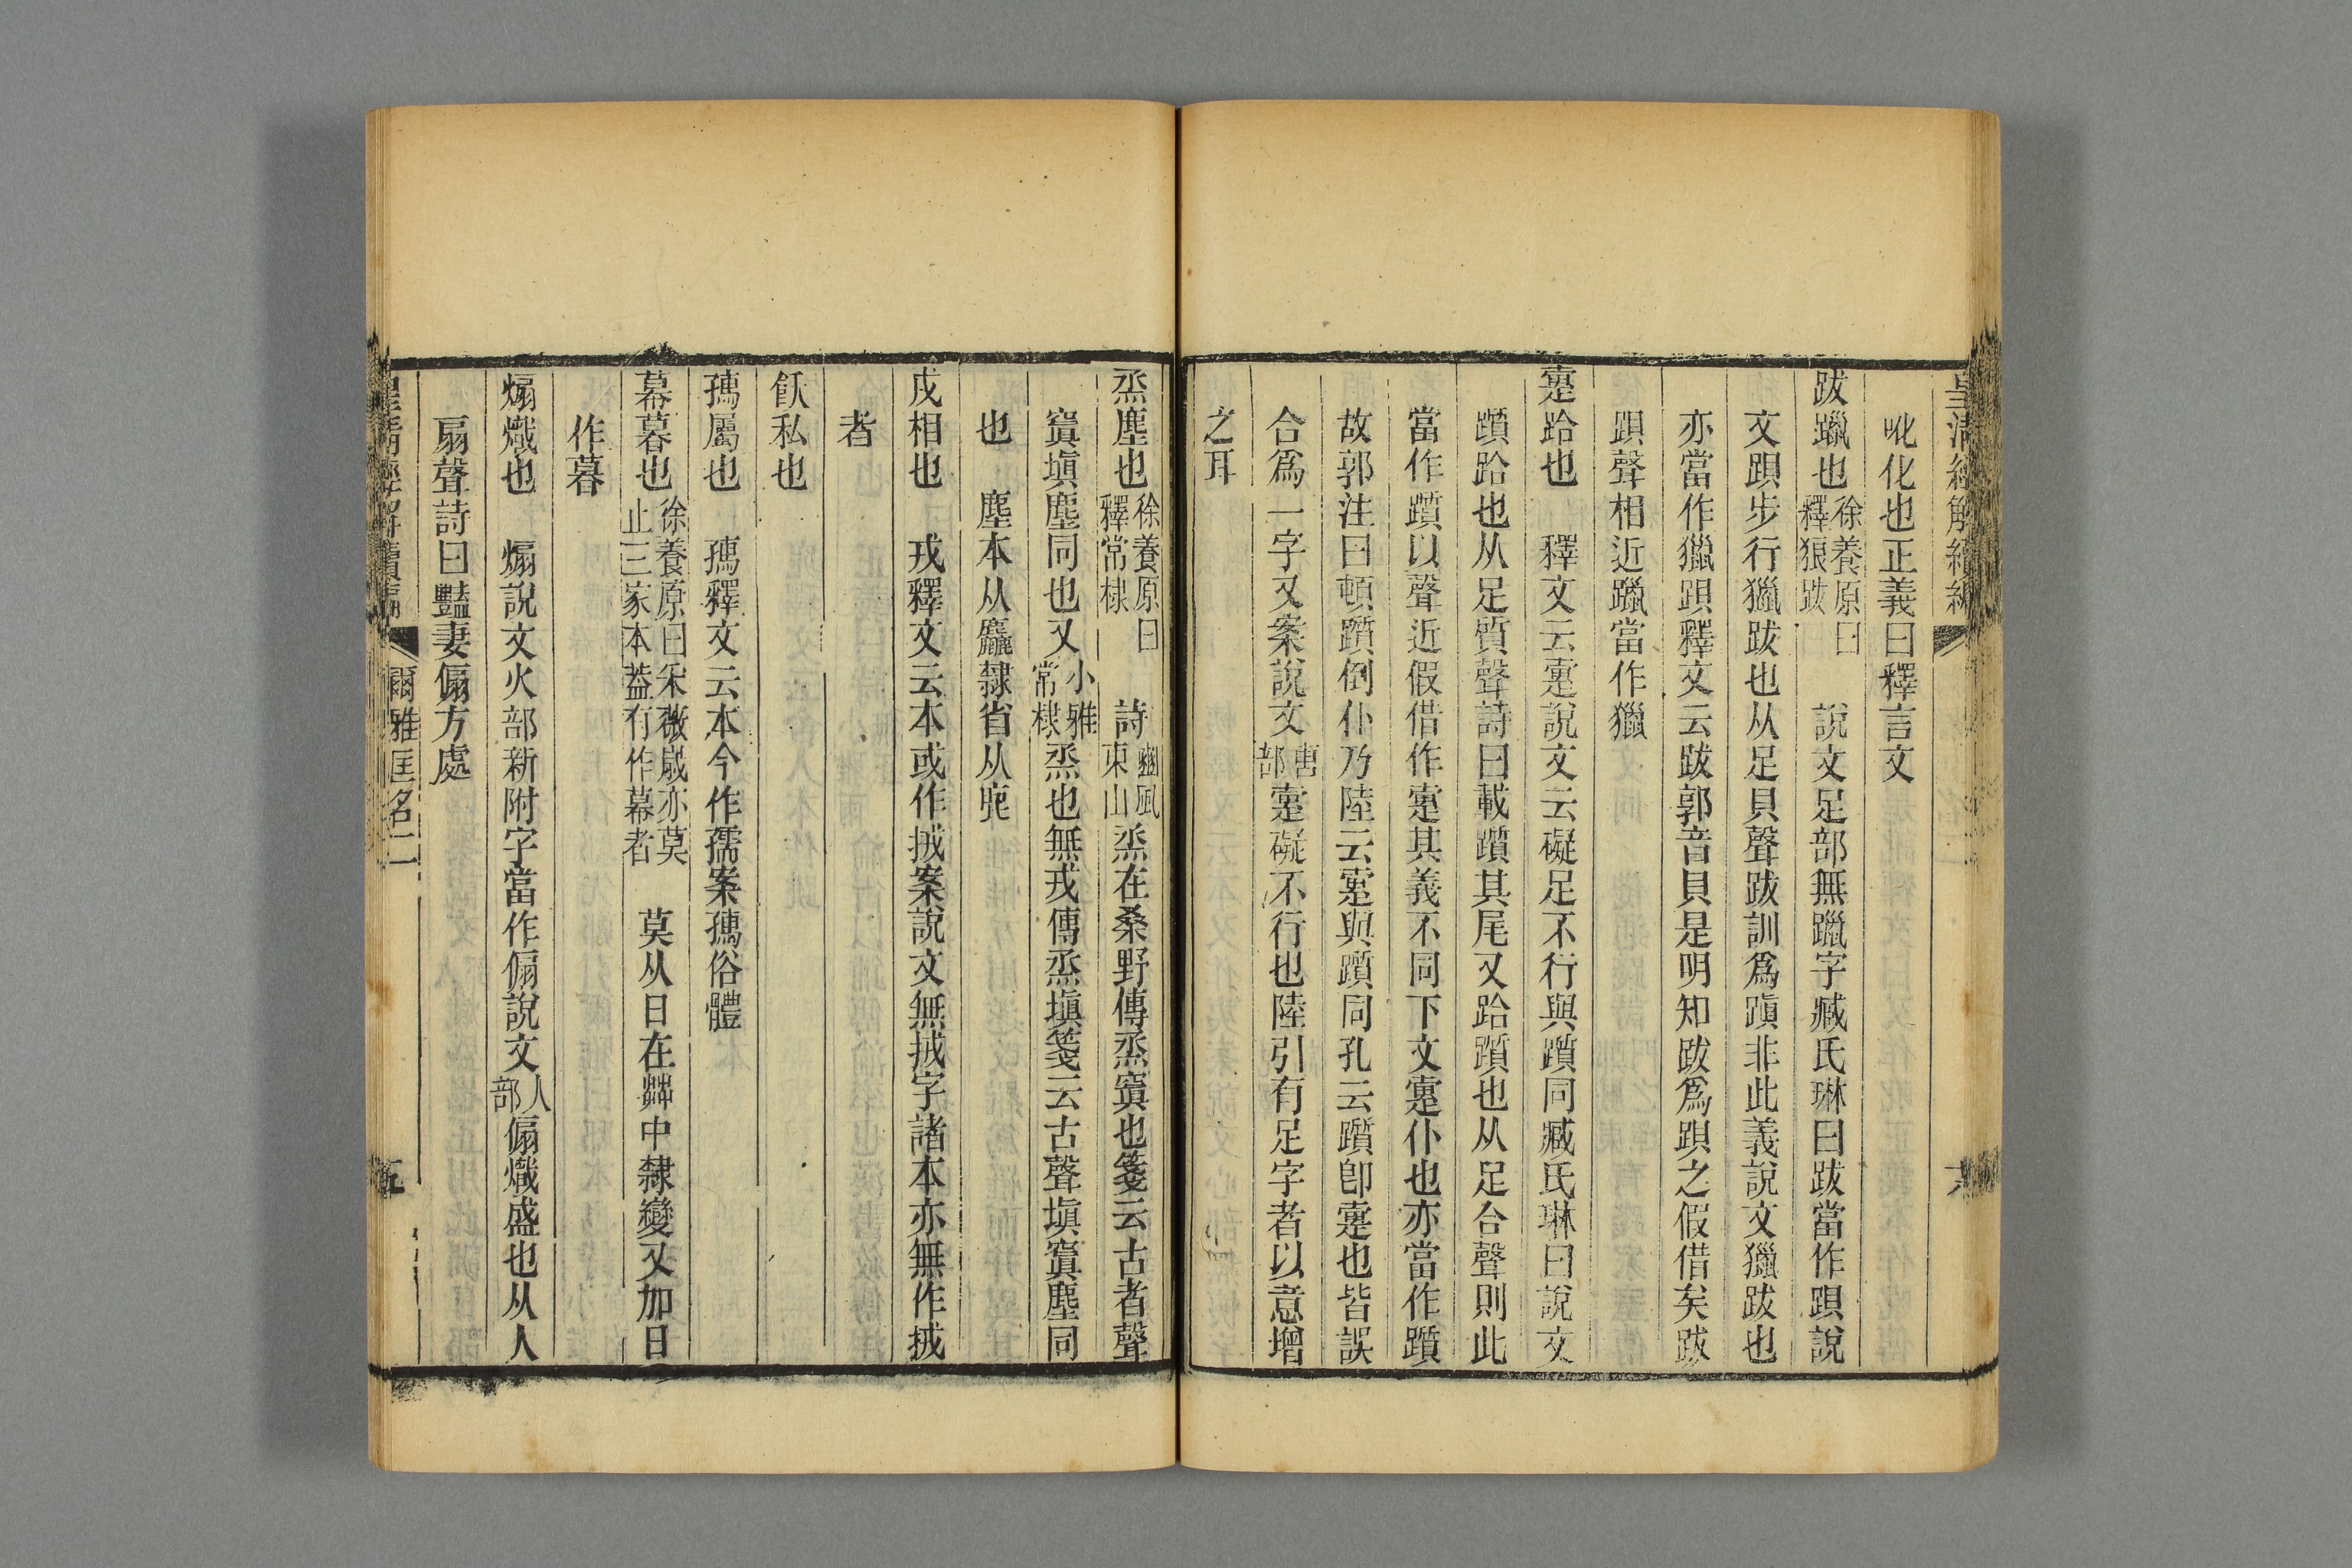 皇清經解續編
吪化也正義曰釋言文
跋躐也徐養原曰釋狼跋 說文足部無躐字臧氏琳曰跋當作跟說
文跟步行獵跋也从足貝聲跋訓爲蹎非此義說文獵跋也
亦當作獵跟釋文云跋郭音貝是明知跋爲跟之假借矣跋
跟聲相近躐當作獵
疐跲也 釋文云疐說文云礙足不行與躓同臧氏琳曰說文
躓跲也从足質聲詩曰載躓其尾又跲躓也从足合聲則此
當作躓以聲近假借作疐其義不同下文疐仆也亦當作躓
故郭注曰頓躓倒仆乃陸云疐與躓同孔云躓卽疐也皆誤
合爲一字又案說文叀部疐礙不行也陸引有足字者以意增
之耳
烝塵也徐養原曰釋常棣 詩豳風東山烝在桑野傳烝窴也箋云古者聲
窴塡塵同也又小雅常棣烝也無戎傳烝塡箋云古聲塡窴塵同
也 塵本从麤隸省从鹿
戎相也 戎釋文云本或作拢案說文無拢字諸本亦無作拢
者
飫私也
孺屬也 孺釋文云本今作孺案孺俗體
幕暮也徐養原曰宋薇箴亦莫止三家本葢有作幕者 莫从日在茻中隸變又加日
作暮
煽熾也 煽說文火部新附字當作傓說文人部傓熾盛也从人
扇聲詩曰豔妻傓方處
皇清經解續編
爾雅匡名二
五